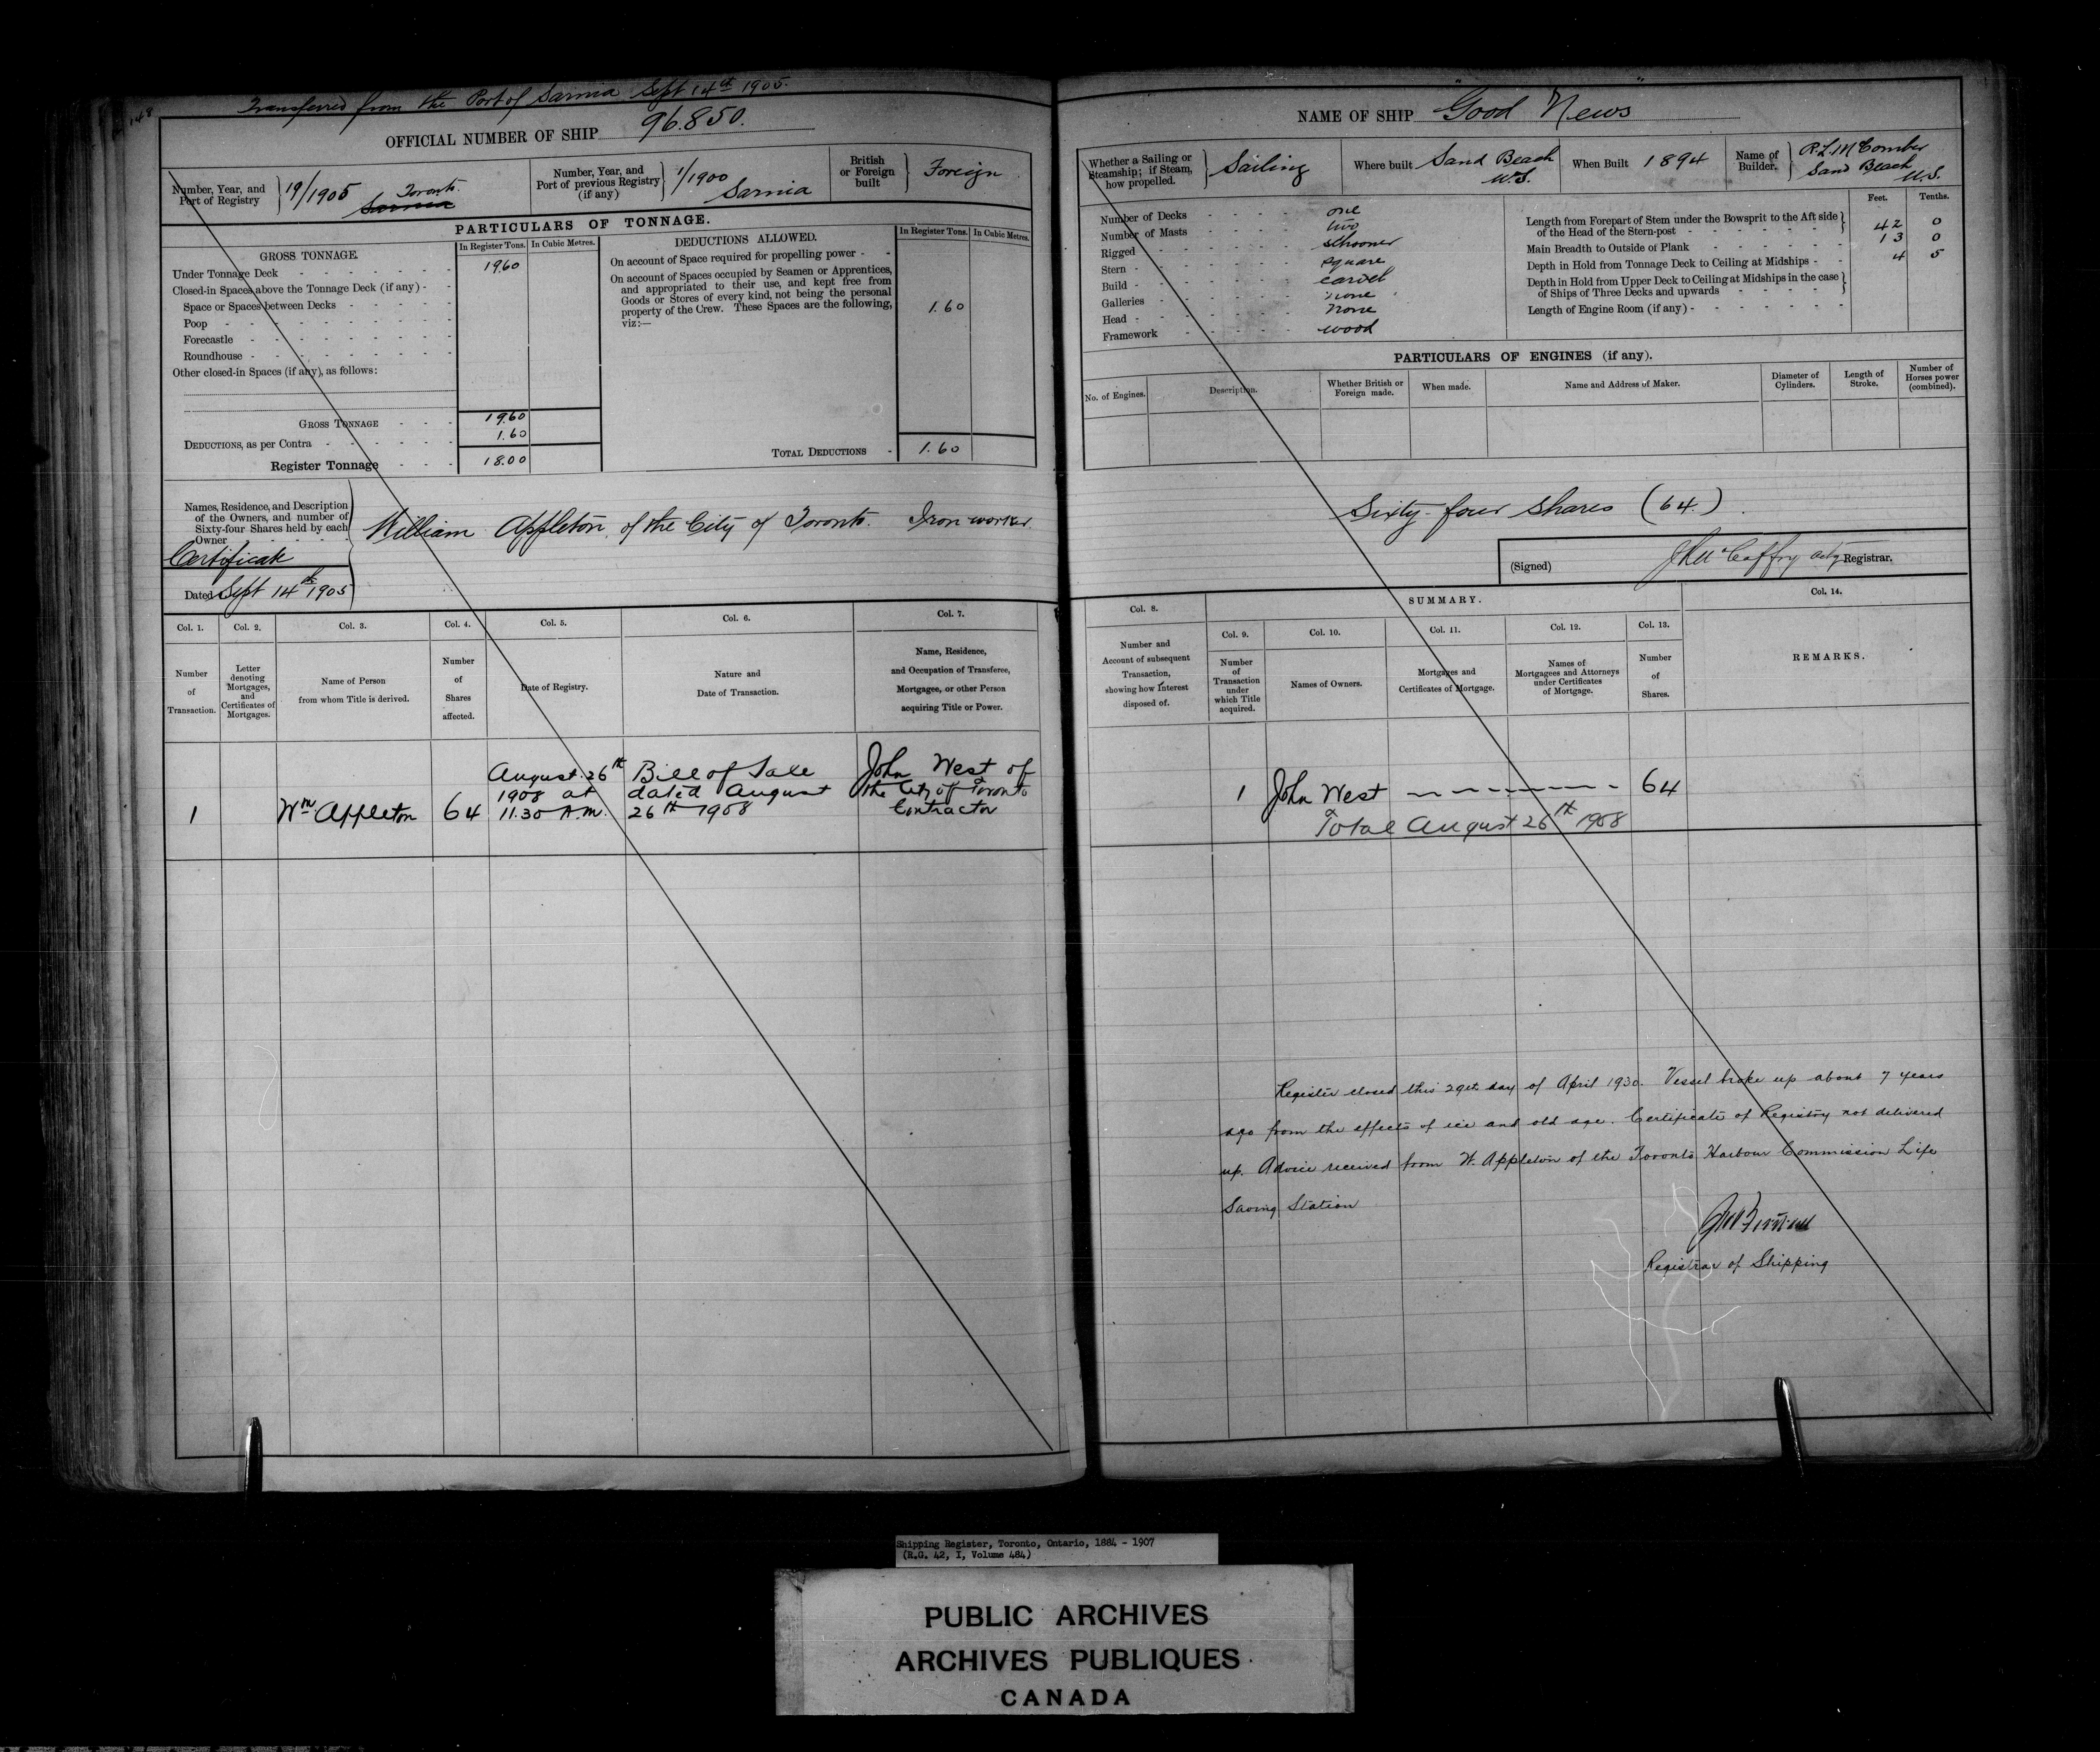 Transferred from the Port of Sarnia Sept 14th 1905.
148
OFFICIAL NUMBER OF SHIP 96.850.
Number, Year, and Port of Registry } 19/1905 Toronto. Sarnia
Number, Year, and Port of previous Registry (if any) } 1/1900 Sarnia
British or Foreign built } Foreign
PARTICULARS OF TONNAGE.
GROSS TONNAGE.
In Register Tons. In Cubic Metres.
Under Tonnage Deck 19.60
Closed-in Spaces above the Tonnage Deck (if any)
Space or Spaces between Decks
Poop
Forecastle
Roundhouse
Other closed-in Spaces (if any), as follows:
GROSS TONNAGE 19.60
DEDUCTIONS, as per Contra 1.60
Register Tonnage 18.00
DEDUCTIONS ALLOWED.
In Register Tons. In Cubic Metres.
On account of Space required for propelling power
On account of Spaces occupied by Seamen or Apprentices,
and appropriated to their use, and kept free from
Goods or Stores of every kind, not being the personal
property of the Crew. These Spaces are the following,
viz:— 1.60
TOTAL DEDUCTIONS 1.60
Names, Residence, and Description
of the Owners, and number of
Sixty-four Shares held by each
Owner
Certificate
Dated Sept 14th 1905
William Appleton, of the City of Toronto. Iron worker
Col. 1. Col. 2. Col. 3. Col. 4. Col. 5. Col. 6. Col. 7.
Number of Transaction.
Letter denoting Mortgages, and Certificates of Mortgages.
Name of Person from whom Title is derived.
Number of Shares affected.
Date of Registry.
Nature and Date of Transaction.
Name, Residence, and Occupation of Transferee, Mortgagee, or other Person acquiring Title or Power.
1
Wm Appleton
64
August 26th
1908 at
11.30 A.M.
Bill of Sale
dated August
26th 1908
John West of
the City of Toronto
Contractor
NAME OF SHIP "Good News"
Whether a Sailing or Steamship; if Steam, how propelled. } Sailing
Where built Sand Beach U.S.
When Built 1894
Name of Builder. } R.L. McComber Sand Beach U.S.
Number of Decks one
Number of Masts two
Rigged schooner
Stern square
Build carvel
Galleries none
Head none
Framework wood
Feet. Tenths.
Length from Forepart of Stem under the Bowsprit to the Aft side
of the Head of the Stern-post 42 0
Main Breadth to Outside of Plank 13 0
Depth in Hold from Tonnage Deck to Ceiling at Midships 4 5
Depth in Hold from Upper Deck to Ceiling at Midships in the case
of Ships of Three Decks and upwards
Length of Engine Room (if any)
PARTICULARS OF ENGINES (if any).
No. of Engines.
Description.
Whether British or Foreign made.
When made.
Name and Address of Maker.
Diameter of Cylinders.
Length of Stroke.
Number of Horses power (combined).
Sixty-four Shares (64).
(Signed) J McCaffry actg Registrar.
Col. 8. SUMMARY. Col. 14.
Col. 9. Col. 10. Col. 11. Col. 12. Col. 13.
Number and Account of subsequent Transaction, showing how Interest disposed of.
Number of Transaction under which Title acquired.
Names of Owners.
Mortgages and Certificates of Mortgage.
Names of Mortgagees and Attorneys under Certificates of Mortgage.
Number of Shares.
REMARKS.
1 John West 64
Total August 26th 1908
Register closed this 29th day of April 1930. Vessel broke up about 7 years
ago from the effects of ice and old age. Certificate of Registry not delivered
up. Advice received from W. Appleton of the Toronto Harbour Commission Life
Saving Station
Registrar of Shipping
Shipping Register, Toronto, Ontario, 1884 - 1907
(R.G. 42, I, Volume 484)
PUBLIC ARCHIVES
ARCHIVES PUBLIQUES
CANADA